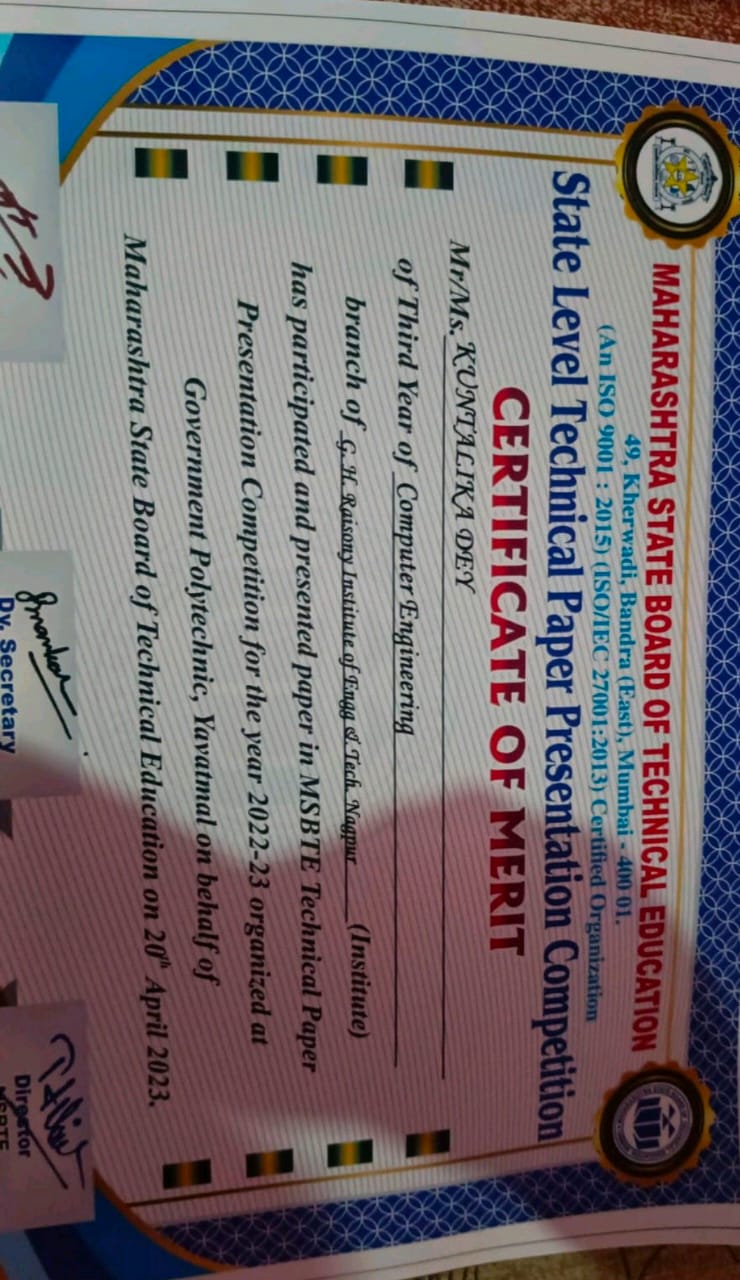 MAHARASHTRA STATE BOARD OF TECHNICAL EDUCATION
49, Kherwadi, Bandra (East), Mumbai - 400 01.
(An ISO 9001 : 2015) (ISO/IEC 27001:2013) Certified Organization
State Level Technical Paper Presentation Competition
CERTIFICATE OF MERIT
Mr/Ms. KUNTALIKA DEY
of Third Year of Computer Engineering
branch of G. H. Raisony Institute of Engg & Tech. Nagpur (Institute)
has participated and presented paper in MSBTE Technical Paper
Presentation Competition for the year 2022-23 organized at
Government Polytechnic, Yavatmal on behalf of
Maharashtra State Board of Technical Education on 20th April 2023.
Dy. Secretary
Director
MSBTE